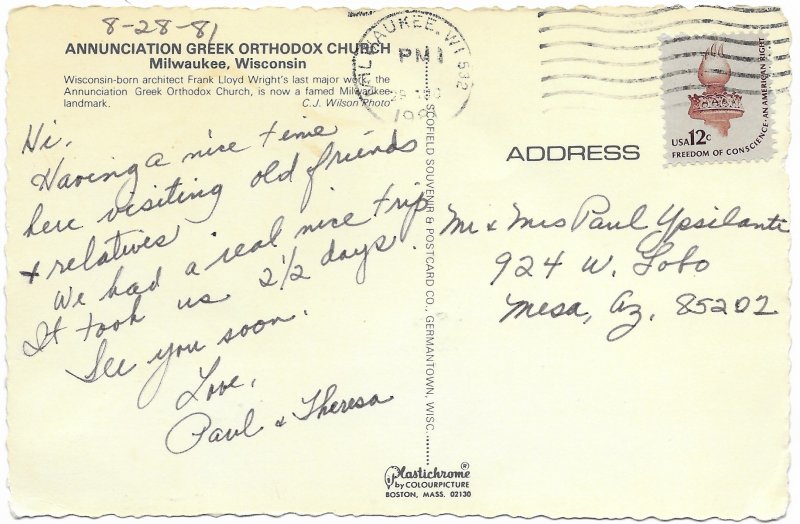 8-28-81
ANNUNCIATION GREEK ORTHODOX CHURCH
Milwaukee, Wisconsin
Wisconsin-born architect Frank Lloyd Wright's last major work, the
Annunciation Greek Orthodox Church, is now a famed Milwaukee
landmark. C.J. Wilson Photo
Hi,
Having a nice time
here visiting old friends
& relatives.
We had a real nice trip.
It took us 2 1/2 days.
See you soon.
Love,
Paul & Theresa
SCOFIELD SOUVENIR & POSTCARD CO., GERMANTOWN, WISC.
Plastichrome®
by COLOURPICTURE
BOSTON, MASS. 02130
MILWAUKEE, WI 532
PM
USA 12c
FREEDOM OF CONSCIENCE-AN AMERICAN RIGHT
ADDRESS
Mr & Mrs Paul Ypsilanti
924 W. Lobo
Mesa, Az. 85202